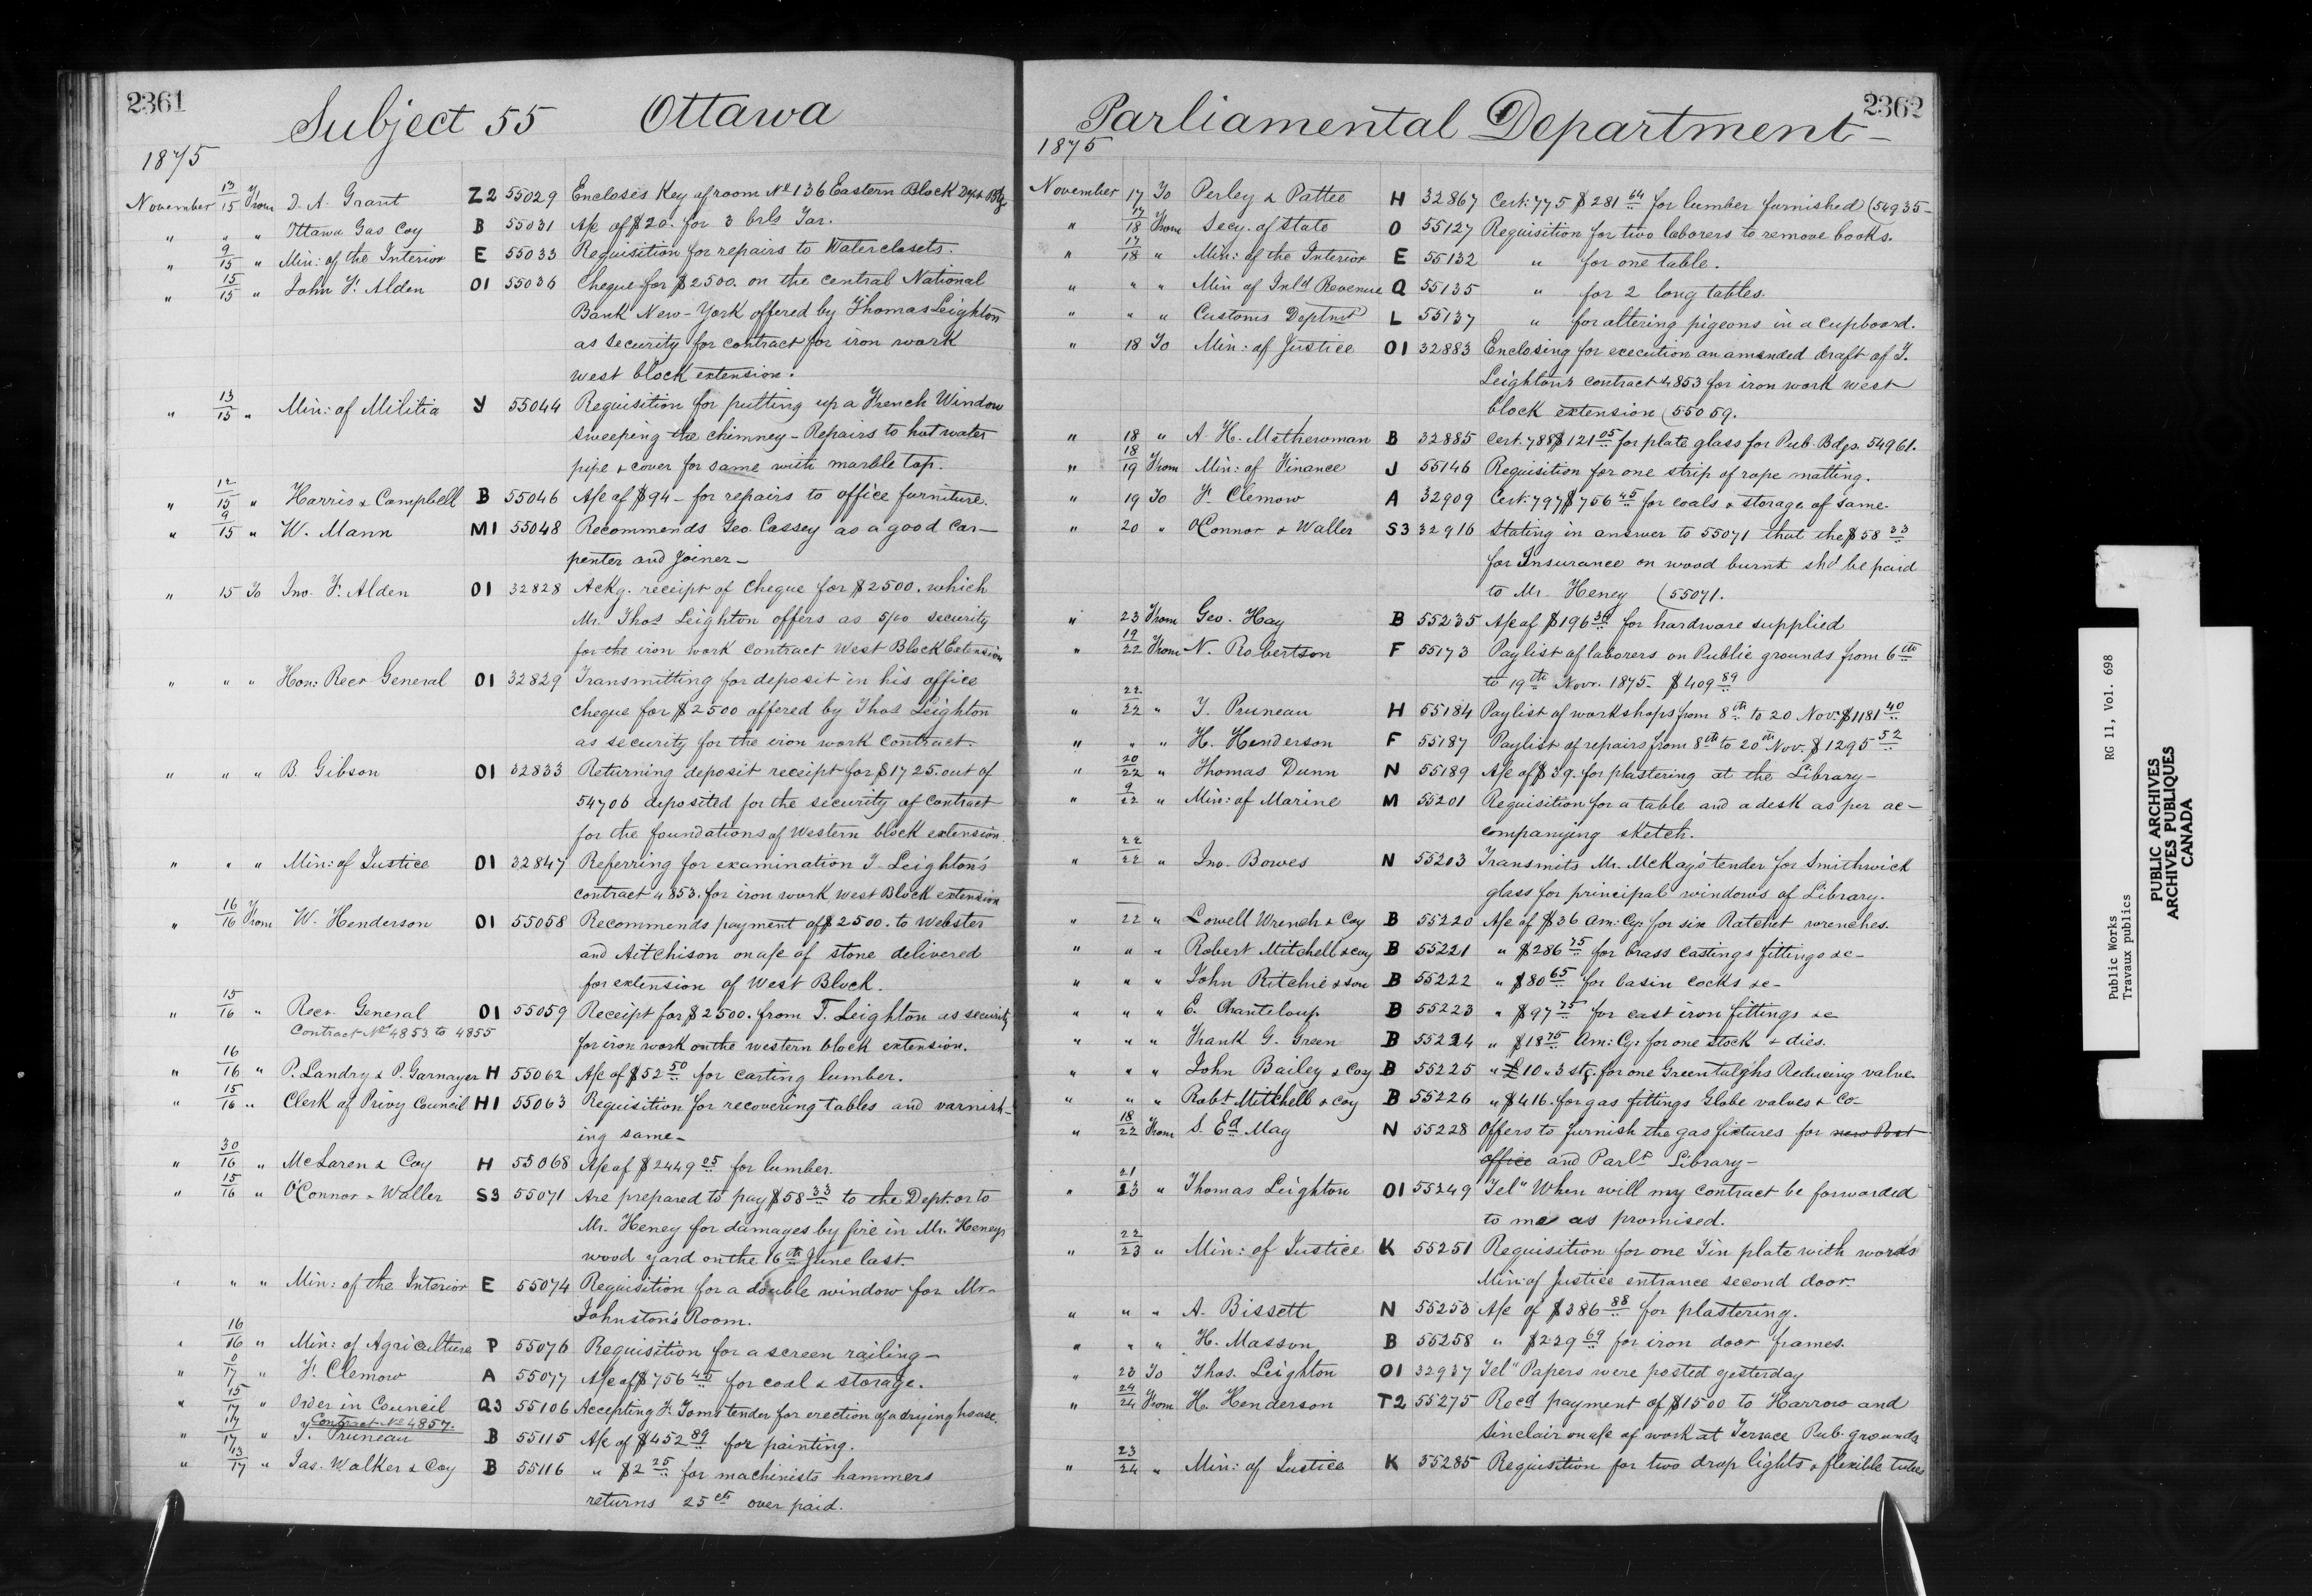 2361
Subject 55 Ottawa
1875
November 13/15 From D. A. Grant Z2 55029 Encloses Key of room No 136 Eastern Block Dept Bdg.
" " " Ottawa Gas Coy B 55031 A/c of $20. for 3 brls Tar.
" 9/15 " Min: of the Interior E 55033 Requisition for repairs to Waterclosets.
" 15/15 " John F. Alden O1 55036 Cheque for $2500. on the central National
Bank New-York offered by Thomas Leighton
as security for contract for iron work
west block extension.
" 13/15 " Min: of Militia Y 55044 Requisition for putting up a French Window
sweeping the chimney - Repairs to hot water
pipe & cover for same with marble top.
" 12/15 " Harris & Campbell B 55046 A/c of $94 - for repairs to office furniture.
" 9/15 " W. Mann M1 55048 Recommends Geo. Cassey as a good car-
penter and Joiner -
" 15 To Jno. F. Alden O1 32828 Ackg. receipt of Cheque for $2500. which
Mr. Thos Leighton offers as 5/00 security
for the iron work contract West Block Extension
" " " Hon: Recr General O1 32829 Transmitting for deposit in his office
cheque for $2500 offered by Thos Leighton
as security for the iron work contract.
" " " B. Gibson O1 32833 Returning deposit receipt for $1725. out of
54706 deposited for the security of contract
for the foundations of Western block extension.
" " " Min: of Justice O1 32847 Referring for examination T. Leighton's
contract 4853. for iron work West Block extension
" 16/16 From W. Henderson O1 55058 Recommends payment of $2500. to Webster
and Aitchison on a/c of stone delivered
for extension of West Block.
" 15/16 " Recr. General O1 55059 Receipt for $2500. from T. Leighton as security
Contract Nos 4853 to 4855
for iron work on the western block extension.
" 16/16 " P. Landry & P. Garnayer H 55062 A/c of $52 50 for carting lumber.
" 15/16 " Clerk of Privy Council H1 55063 Requisition for recovering tables and varnish-
ing same -
" 30/16 " McLaren & Coy H 55068 A/c of $2449 05 for lumber.
" 15/16 " O'Connor & Waller S3 55071 Are prepared to pay $58 33 to the Dept. or to
Mr. Heney for damages by fire in Mr. Heneys
wood yard on the 16th June last.
" " " Min: of the Interior E 55074 Requisition for a double window for Mr.
Johnston's Room.
" 16/16 " Min: of Agriculture P 55076 Requisition for a screen railing -
" 0/17 " F. Clemow A 55077 A/c of $756 45 for coal & storage.
" 15/17 " Order in Council Q3 55106 Accepting F. Toms tender for erection of a drying house.
Contract No 4857.
" 17/17 " T. Pruneau B 55115 A/c of $452 89 for painting.
" 13/17 " Jas. Walker & Coy B 55116 " $2 25 for machinists hammers
returns 25 cts over paid.
2362
Parliamental Department -
1875
November 17 To Perley & Pattee H 32867 Cert: 775 $281 64 for lumber furnished (54935 -
" 17/18 From Secy. of State O 55127 Requisition for two laborers to remove books.
" 17/18 " Min: of the Interior E 55132 " for one table.
" " " Min of Inld Revenue Q 55135 " for 2 long tables.
" " " Customs Deptmt L 55137 " for altering pigeons in a cupboard.
" 18 To Min: of Justice O1 32883 Enclosing for execution an amended draft of T.
Leighton's contract 4853 for iron work west
block extension (55059.
" 18 " A. H. Mathewman B 32885 Cert. 788 $121 05 for plate glass for Pub. Bdgs. 54961.
" 18/19 From Min: of Finance J 55146 Requisition for one strip of rope matting.
" 19 To F. Clemow A 32909 Cert: 797 $756 45 for coals & storage of same.
" 20 " O'Connor & Waller S3 32916 Stating in answer to 55071 that the $58 33
for Insurance on wood burnt shd be paid
to Mr. Heney (55071.
" 23 From Geo. Hay B 55235 A/c of $196 30 for hardware supplied
" 19/22 From N. Robertson F 55173 Paylist of laborers on Public grounds from 6th
to 19th Novr. 1875. $409 89
" 22/22 " T. Pruneau H 55184 Paylist of workshops from 8th to 20 Nov. $1181 40
" " " H. Henderson F 55187 Paylist of repairs from 8th to 20th Nov. $1295 52
" 20/22 " Thomas Dunn N 55189 A/c of $39. for plastering at the Library -
" 9/22 " Min: of Marine M 55201 Requisition for a table and a desk as per ac-
companying sketch.
" 22/22 " Jno. Bowes N 55203 Transmits Mr. McKay's tender for Smithwick
glass for principal windows of Library.
" 22 " Lowell Wrench & Coy B 55220 A/c of $36 Am: Cy: for six Ratchet wrenches.
" " " Robert Mitchell & coy B 55221 " $286 75 for brass castings fittings &c -
" " " John Ritchie & son B 55222 " $80 65 for basin cocks &c -
" " " E. Chanteloup B 55223 " $97 75 for cast iron fittings &c
" " " Frank G. Green B 55224 " $18 75 Am: Cy: for one stock & dies.
" " " John Bailey & Coy B 55225 " £10 " 3 stg. for one Greentulghs Reducing valve.
" " " Robt Mitchell & coy B 55226 " $416. for gas fittings Globe valves & Co -
" 18/22 From S. Ed May N 55228 Offers to furnish the gas fixtures for new Post
office and Parlt Library -
" 21/23 " Thomas Leighton O1 55249 Tel" When will my contract be forwarded
to me as promised.
" 22/23 " Min: of Justice K 55251 Requisition for one Tin plate with words
Min: of Justice entrance second door.
" " " A. Bissett N 55253 A/c of $386 88 for plastering.
" " " H. Masson B 55258 " $229 69 for iron door frames.
" 23 To Thos. Leighton O1 32937 Tel" Papers were posted yesterday
" 24/24 From H. Henderson T2 55275 Recd payment of $1500 to Harrow and
Sinclair on a/c of work at Terrace Pub. grounds
" 23/24 " Min: of Justice K 55285 Requisition for two drop lights & flexible tubes
Public Works RG 11, Vol. 698
Travaux publics
PUBLIC ARCHIVES
ARCHIVES PUBLIQUES
CANADA